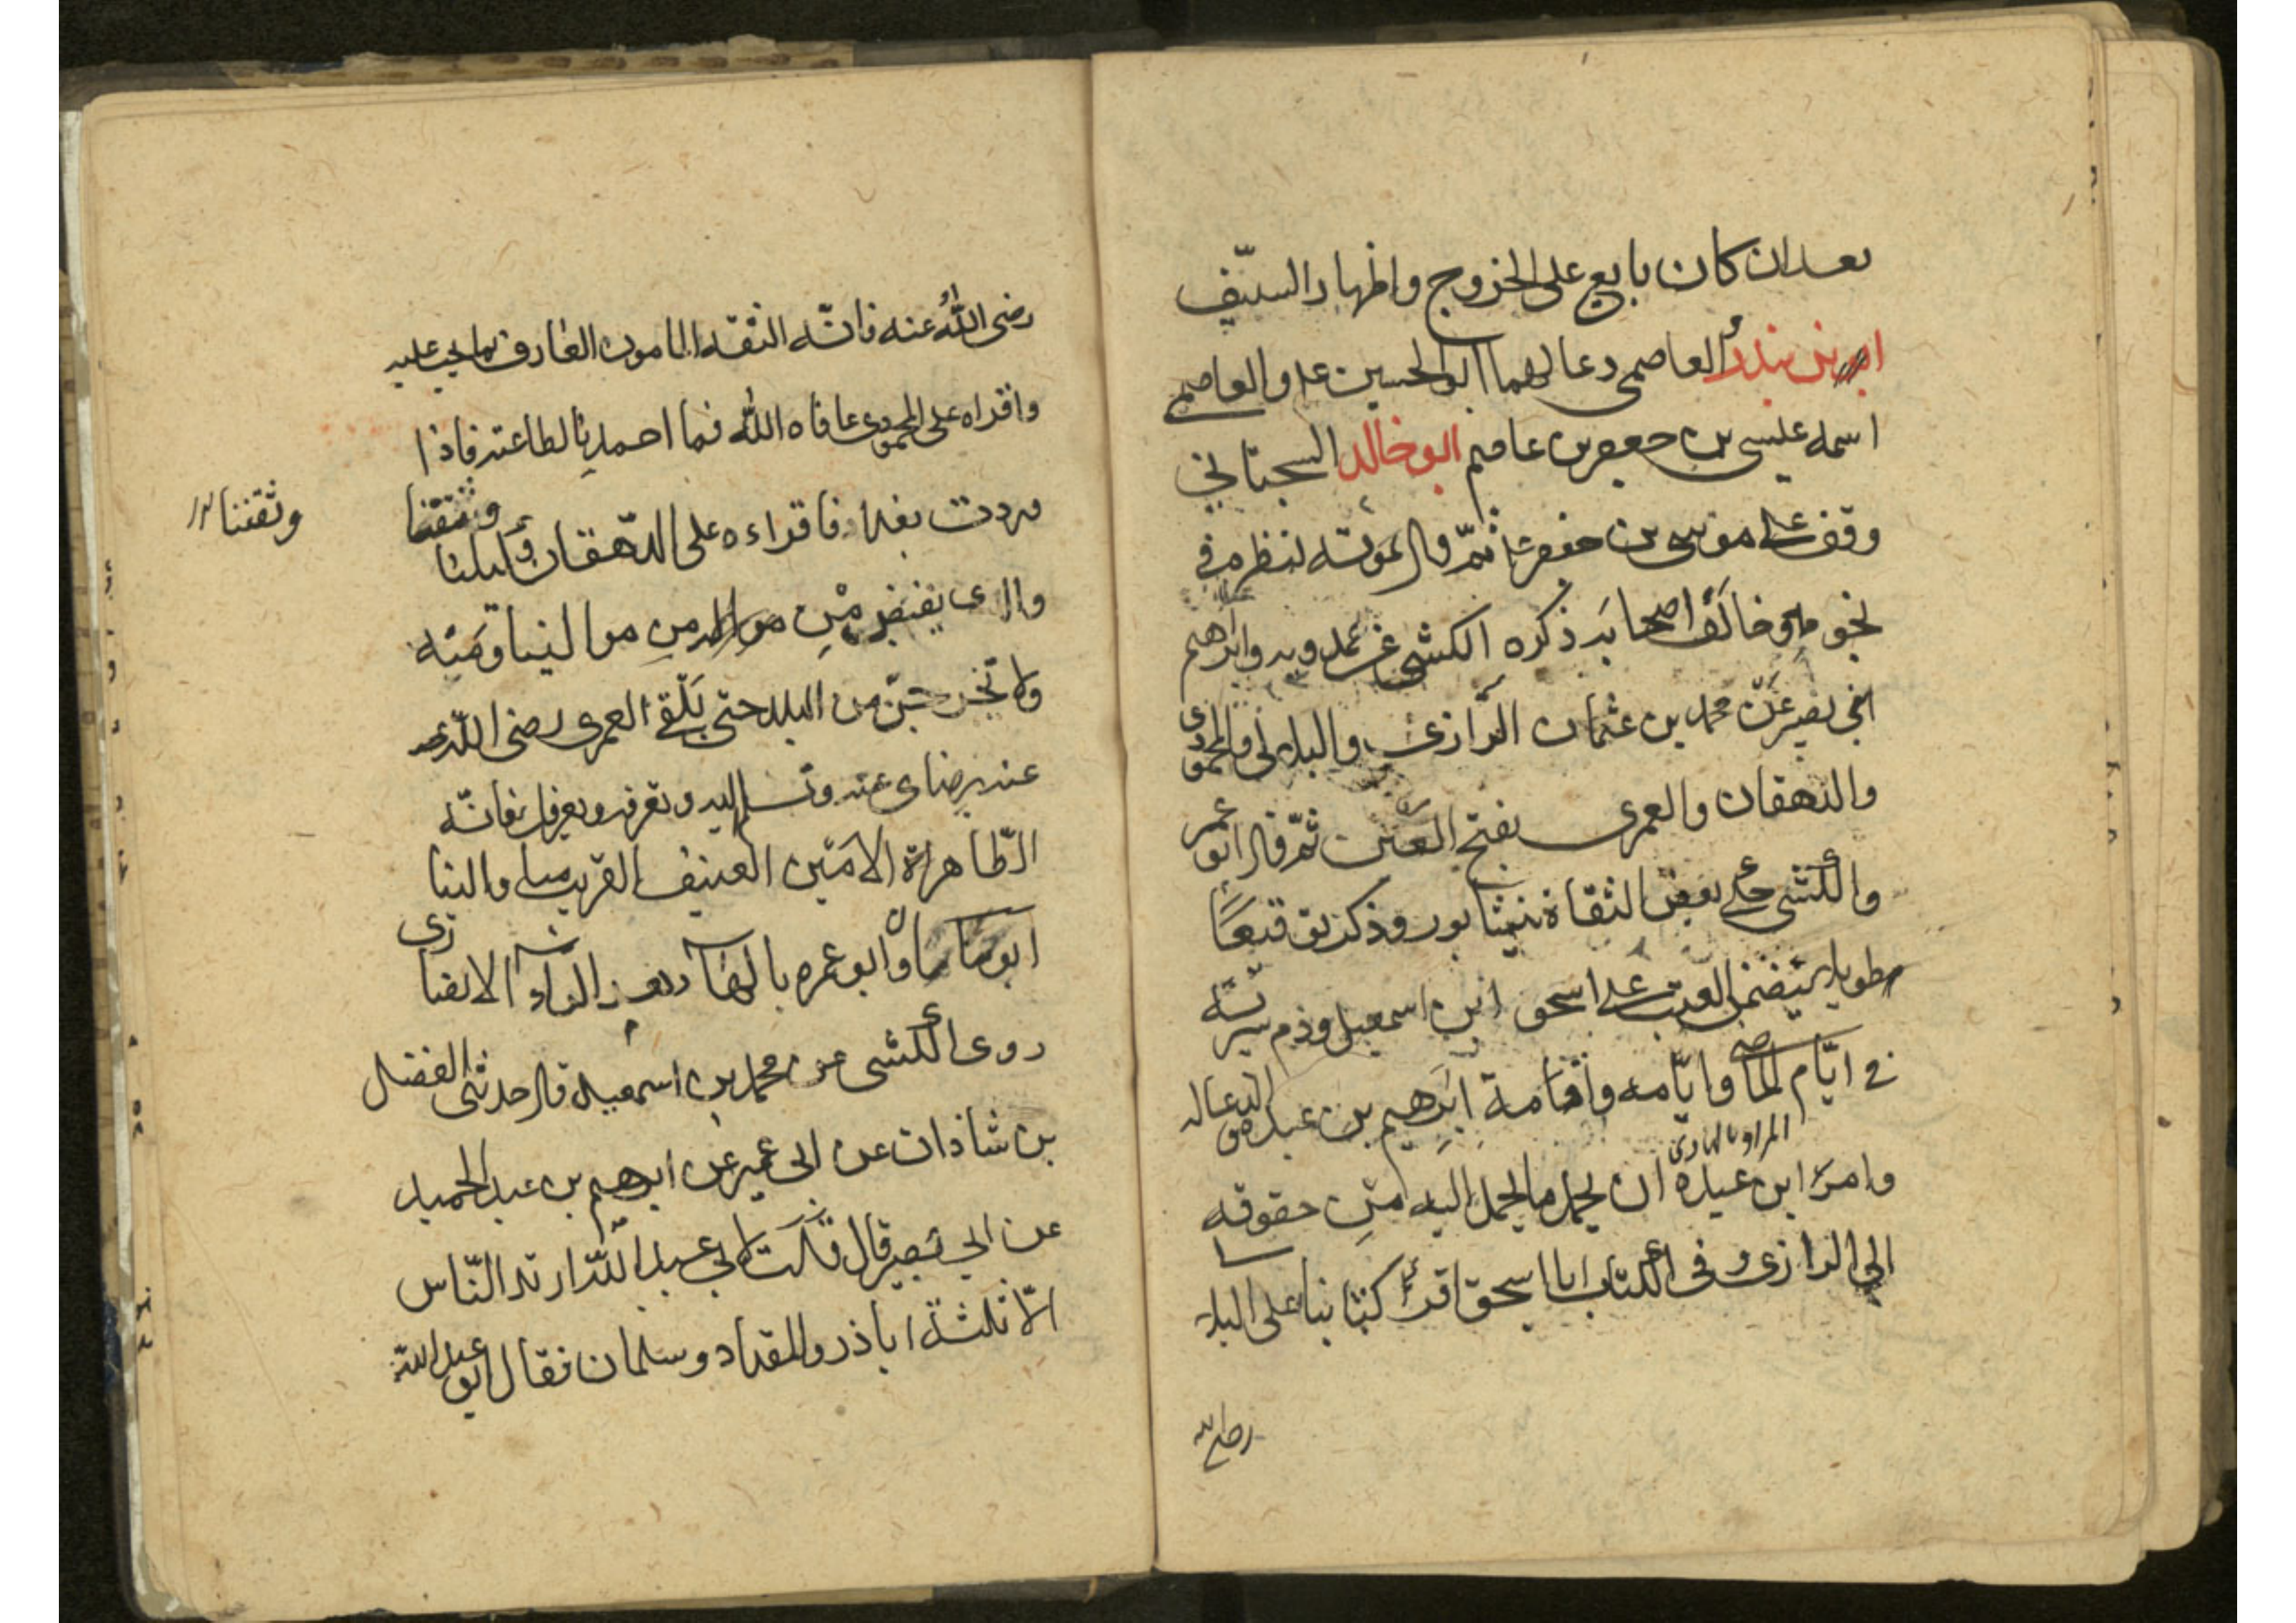 بعد ان كان بايع على الخروج واظهار السيّف
بن بندار العاصمى دعا لهما ابو الحسين ع والعاصمى
اسمه عيسى بن جعفر بن عاصم ابو خالد السجستاني
وقف على موسى بن جعفر ع ثمّ قال بموته لنظره في
نجومه وخالف اصحابه ذكره الكشى عن حمدويه وابرهيم
ابني نصير عن محمد بن عثمان الرازى والبلالى والمحمودى
والدهقان والعمرى بفتح العين ثمّ قال ابو عمر
والكشى حكى بعض الثقاة نيشابور وذكر توقيعًا
طويلا يتضمن العتب على اسحق ابن اسمعيل وذم سيرته
في ايّام الماضى وايّامه واقامة ابرهيم بن عبده والدعا له
المراد بالهادى
وامر ابن عبده ان يحمل ما يحمل اليه من حقوقه
الى الرازى وفى الكتاب يا اسحق اقرأ كتابنا على البلالى
رضى الله
رضى اللهُ عنه فانّه الثقه المامون العارف بما يجب عليه
واقراه على المحمودى عافاه الله فما احمدنا لطاعته فاذا
وردت بغداد فاقراءه على الدّهقان وكيلنا وثقتنا
وثقتنا
والذى يقبض من موالينا
ولا تخرجنّ من البلد حتى تلقى العمرى رضى اللّه
عنه برضاى عنه وتسلم اليه وتعرفه ويعرفك فانّه
الطّاهر الامين العفيف القريب منا والينا
ابو وابو عمره بالهاء الانصارى
روى الكشى عن محمد بن اسمعيل قال حدثنى الفضل
بن شاذان عن ابى عمير عن ابرهيم بن عبد الحميد
عن ابي بصير قال قلت لابي عبد اللّه ارتد النّاس
الّا ثلثة اباذر والمقداد وسلمان فقال ابو عبد الله